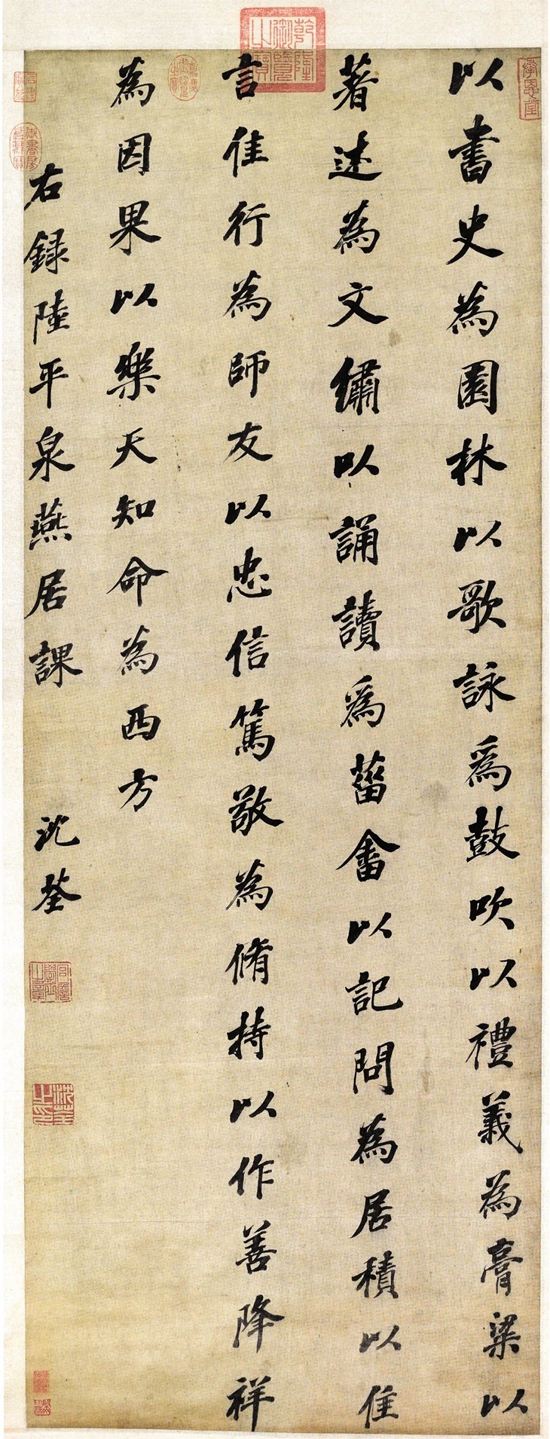 乾隆御覽之寶
以書史為園林以歌詠爲鼓吹以禮義為膏粱以
著述為文繡以誦讀爲菑畬以記問為居積以佳
言佳行為師友以忠信篤敬為脩持以作善降祥
為因果以樂天知命為西方
右録陸平泉燕居課 沈荃
沈荃之印